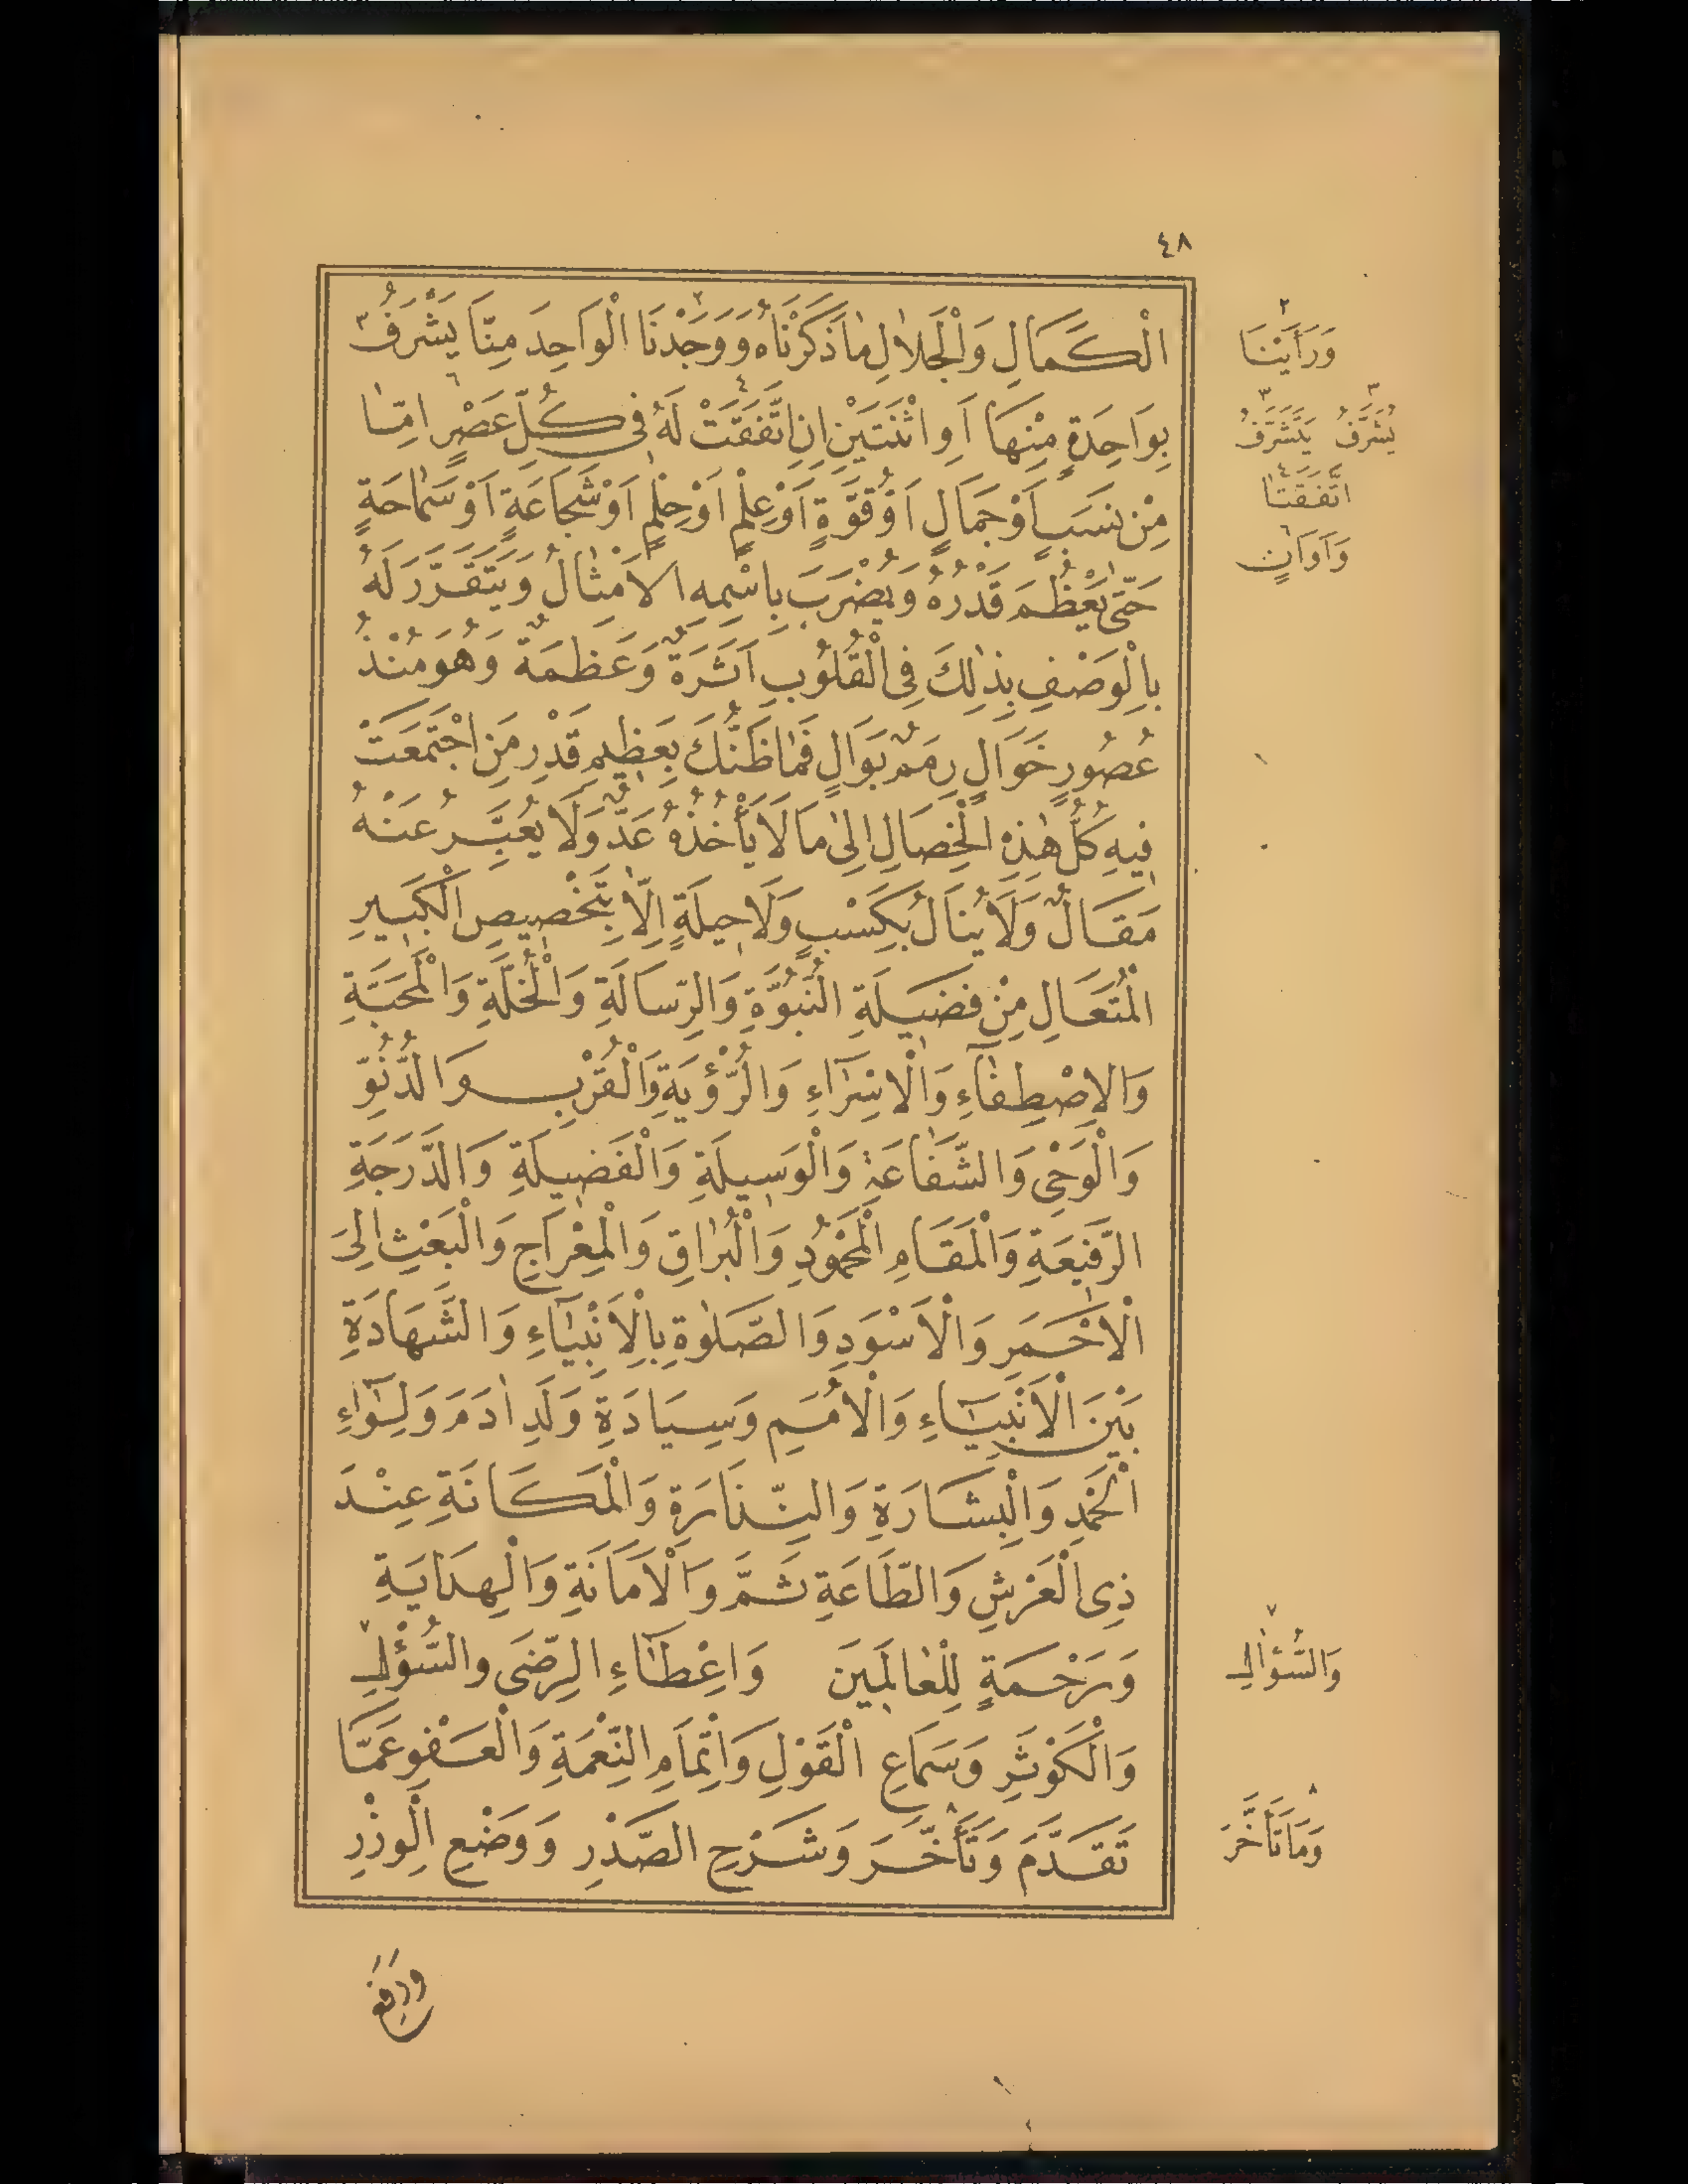 ٤٨
الْكَمَالِ وَالْجَلَالِ مَا ذَكَرْنَاهُ وَ٢وَجَدْنَا الْوَاحِدَ مِنَّا يَشْرُفُ٣
بِوَاحِدَةٍ مِنْهَا اَوِ اثْنَتَيْنِ اِنِ اتَّفَقَتْ٤ لَهُ فِي كُلِّ عَصْرٍ٦ اِمَّا
مِنْ نَسَبٍ اَوْ جَمَالٍ اَوْ قُوَّةٍ اَوْ عِلْمٍ اَوْ حِلْمٍ اَوْ شَجَاعَةٍ اَوْ سَمَاحَةٍ
حَتّٰى يَعْظُمَ قَدْرُهُ وَيُضْرَبَ بِاسْمِهِ الْاَمْثَالُ وَيَتَقَرَّرَ لَهُ
بِالْوَصْفِ بِذٰلِكَ فِي الْقُلُوبِ اَثَرَةٌ وَعَظَمَةٌ وَهُوَ مُنْذُ
عُصُورٍ خَوَالٍ رِمَمٌ بَوَالٍ فَمَا ظَنُّكَ بِعَظِيمِ قَدْرِ مَنِ اجْتَمَعَتْ
فِيهِ كُلُّ هٰذِهِ الْخِصَالِ اِلٰى مَا لَا يَأْخُذُهُ عَدٌّ وَلَا يُعَبِّرُ عَنْهُ
مَقَالٌ وَلَا يُنَالُ بِكَسْبٍ وَلَا حِيلَةٍ اِلَّا بِتَخْصِيصِ الْكَبِيرِ
الْمُتَعَالِ مِنْ فَضِيلَةِ النُّبُوَّةِ وَالرِّسَالَةِ وَالْخُلَّةِ وَالْمَحَبَّةِ
وَالْاِصْطِفَاءِ وَالْاِسْرَاءِ وَالرُّؤْيَةِ وَالْقُرْبِ وَالدُّنُوِّ
وَالْوَحْىِ وَالشَّفَاعَةِ وَالْوَسِيلَةِ وَالْفَضِيلَةِ وَالدَّرَجَةِ
الرَّفِيعَةِ وَالْمَقَامِ الْمَحْمُودِ وَالْبُرَاقِ وَالْمِعْرَاجِ وَالْبَعْثِ اِلَى
الْاَحْمَرِ وَالْاَسْوَدِ وَالصَّلٰوةِ بِالْاَنْبِيَاءِ وَالشَّهَادَةِ
بَيْنَ الْاَنْبِيَاءِ وَالْاُمَمِ وَسِيَادَةِ وَلَدِ اٰدَمَ وَلِوَاءِ
الْحَمْدِ وَالْبِشَارَةِ وَالنِّذَارَةِ وَالْمَكَانَةِ عِنْدَ
ذِى الْعَرْشِ وَالطَّاعَةِ ثَمَّ وَالْاَمَانَةِ وَالْهِدَايَةِ
وَرَحْمَةٍ لِلْعَالَمِينَ وَاِعْطَاءِ الرِّضَى وَالسُّؤْلِ٧
وَالْكَوْثَرِ وَسَمَاعِ الْقَوْلِ وَاِتْمَامِ النِّعْمَةِ وَالْعَفْوِ عَمَّا
تَقَدَّمَ وَتَأَخَّرَ٨ وَشَرْحِ الصَّدْرِ وَوَضْعِ الْوِزْرِ
وَرَفْعِ
٢
وَرَأَيْنَا
٣ ٣
يُشَرَّفُ يَتَشَرَّفُ
٤
اتَّفَقَتَا
٦
وَاَوَانٍ
٧
وَالسُّؤَالِ
٨
وَمَا تَأَخَّرَ